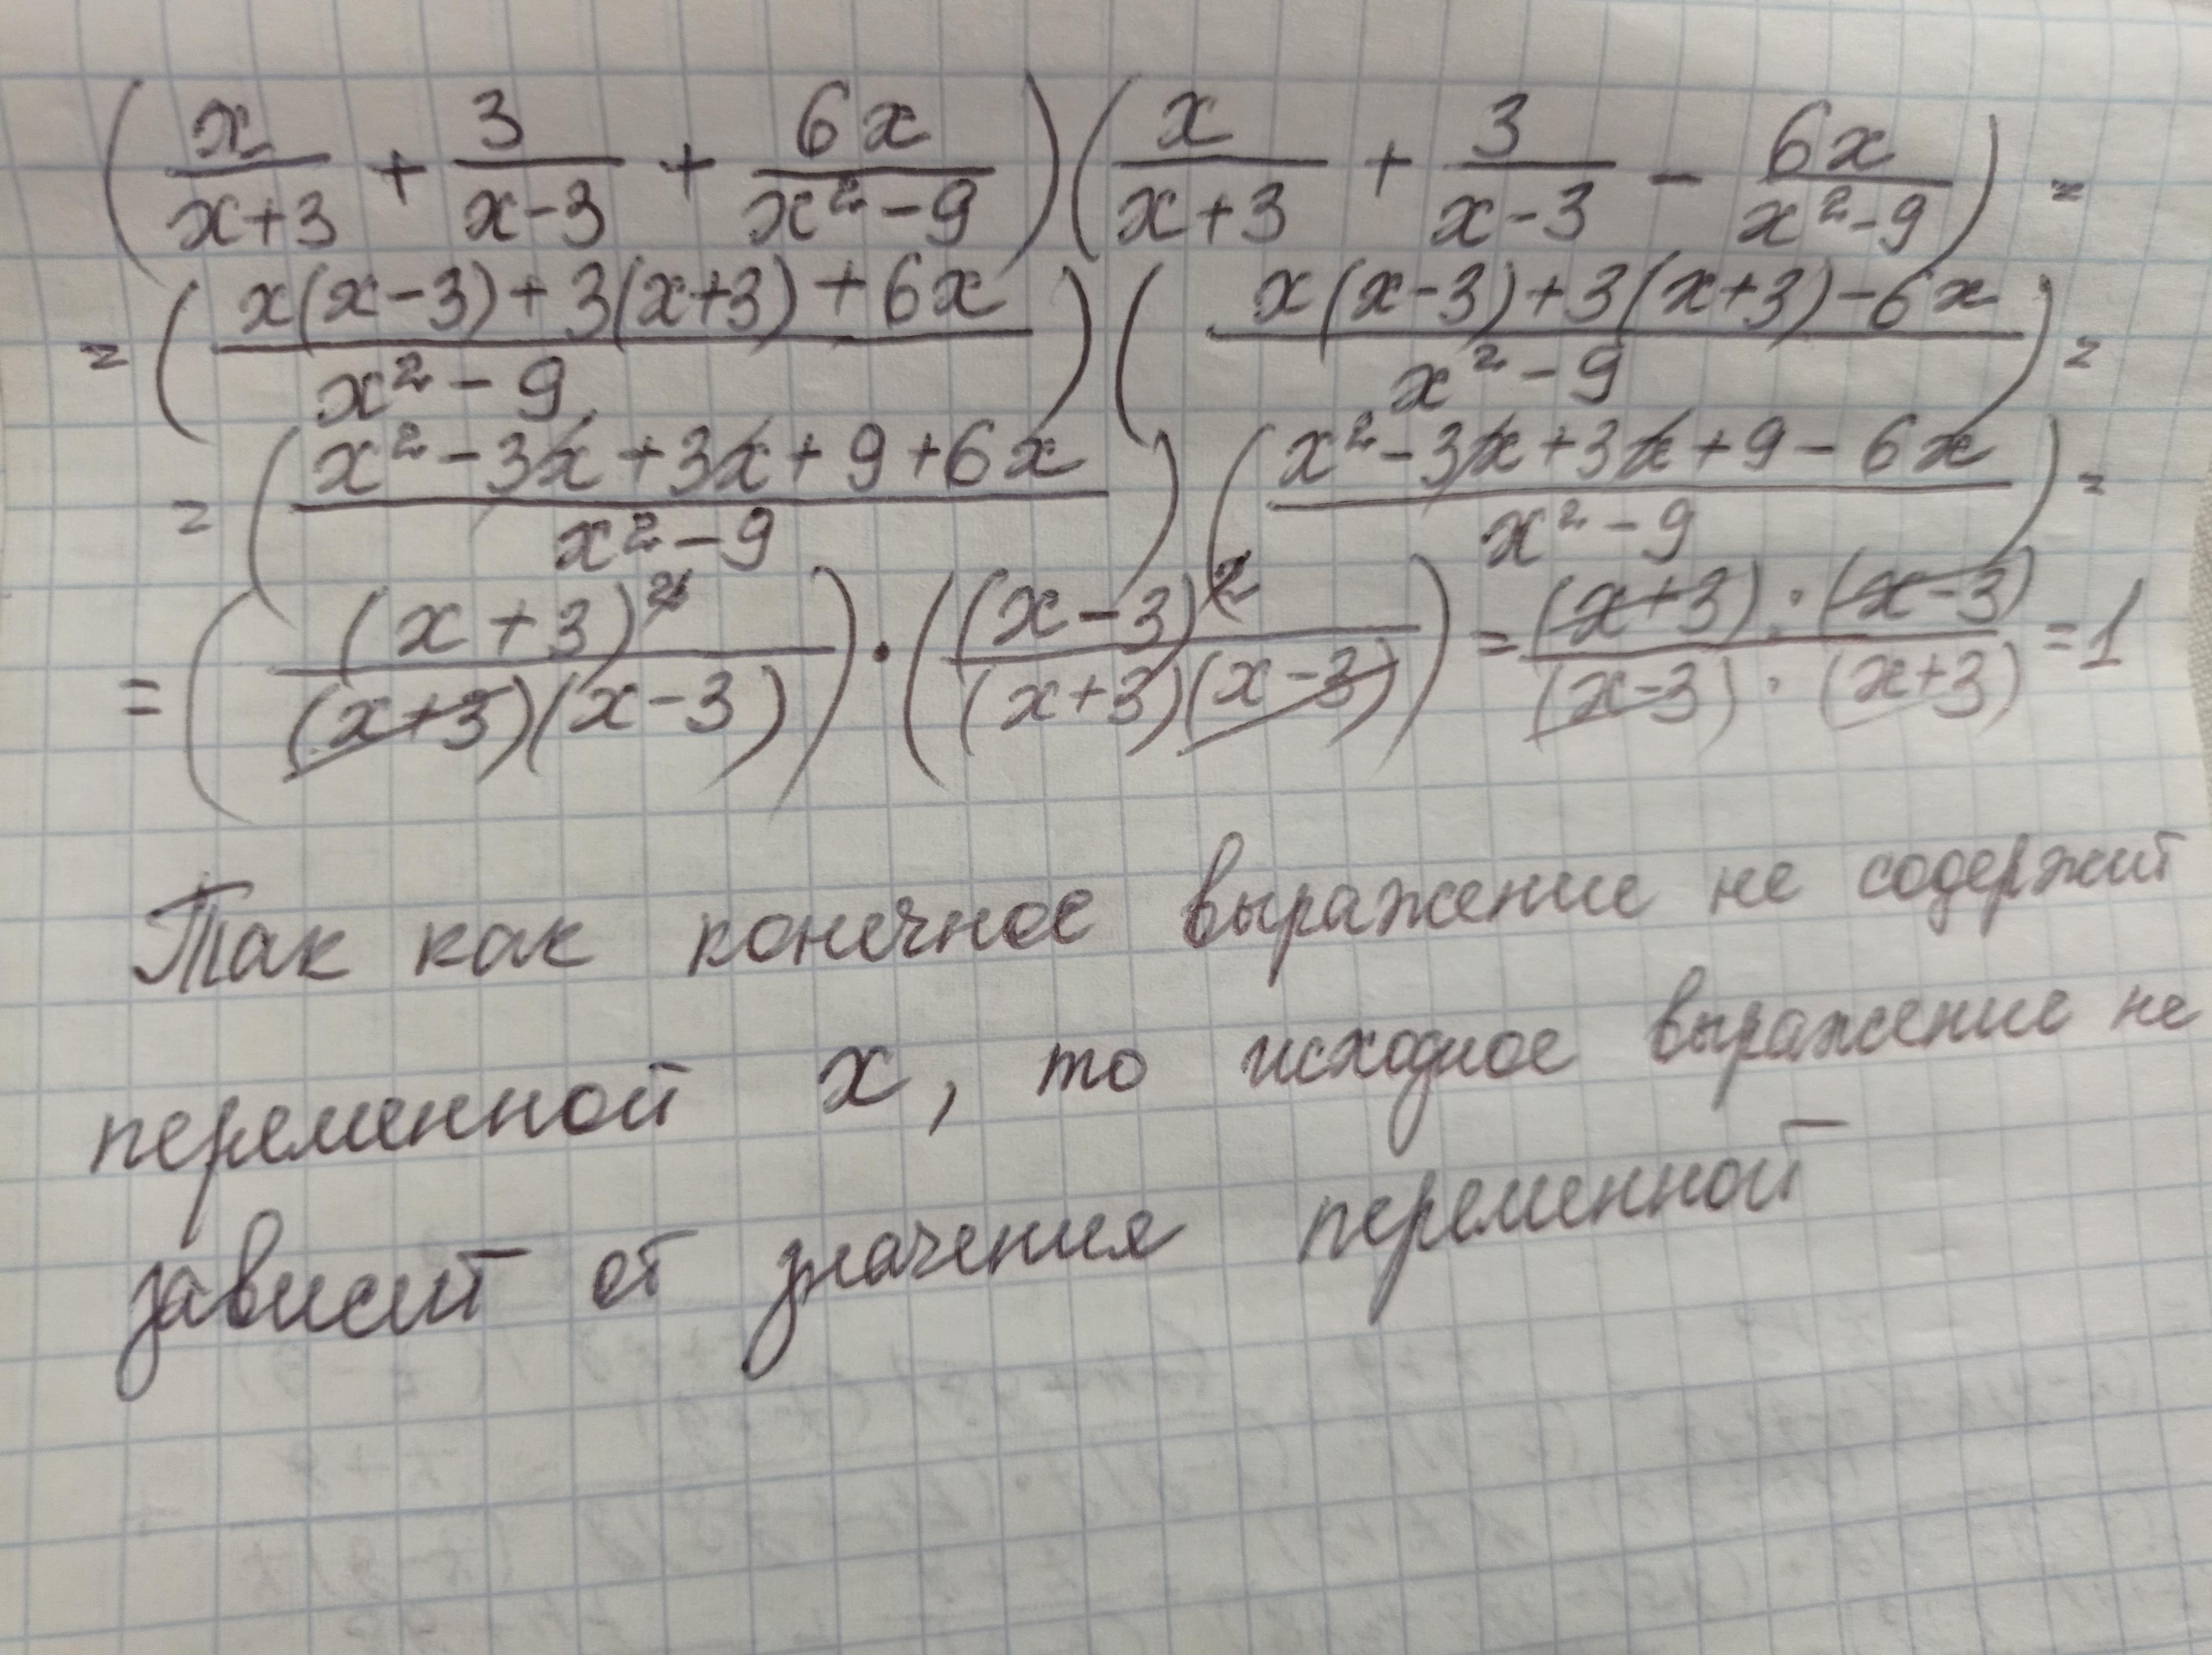 (x/(x+3) + 3/(x-3) + 6x/(x²-9))(x/(x+3) + 3/(x-3) - 6x/(x²-9)) =
= ((x(x-3)+3(x+3)+6x)/(x²-9))((x(x-3)+3(x+3)-6x)/(x²-9)) =
= ((x²-3x+3x+9+6x)/(x²-9))((x²-3x+3x+9-6x)/(x²-9)) =
= ((x+3)²/((x+3)(x-3)))·((x-3)²/((x+3)(x-3))) = ((x+3)·(x-3))/((x-3)·(x+3)) = 1
Так как конечное выражение не содержит
переменной x, то исходное выражение не
зависит от значения переменной